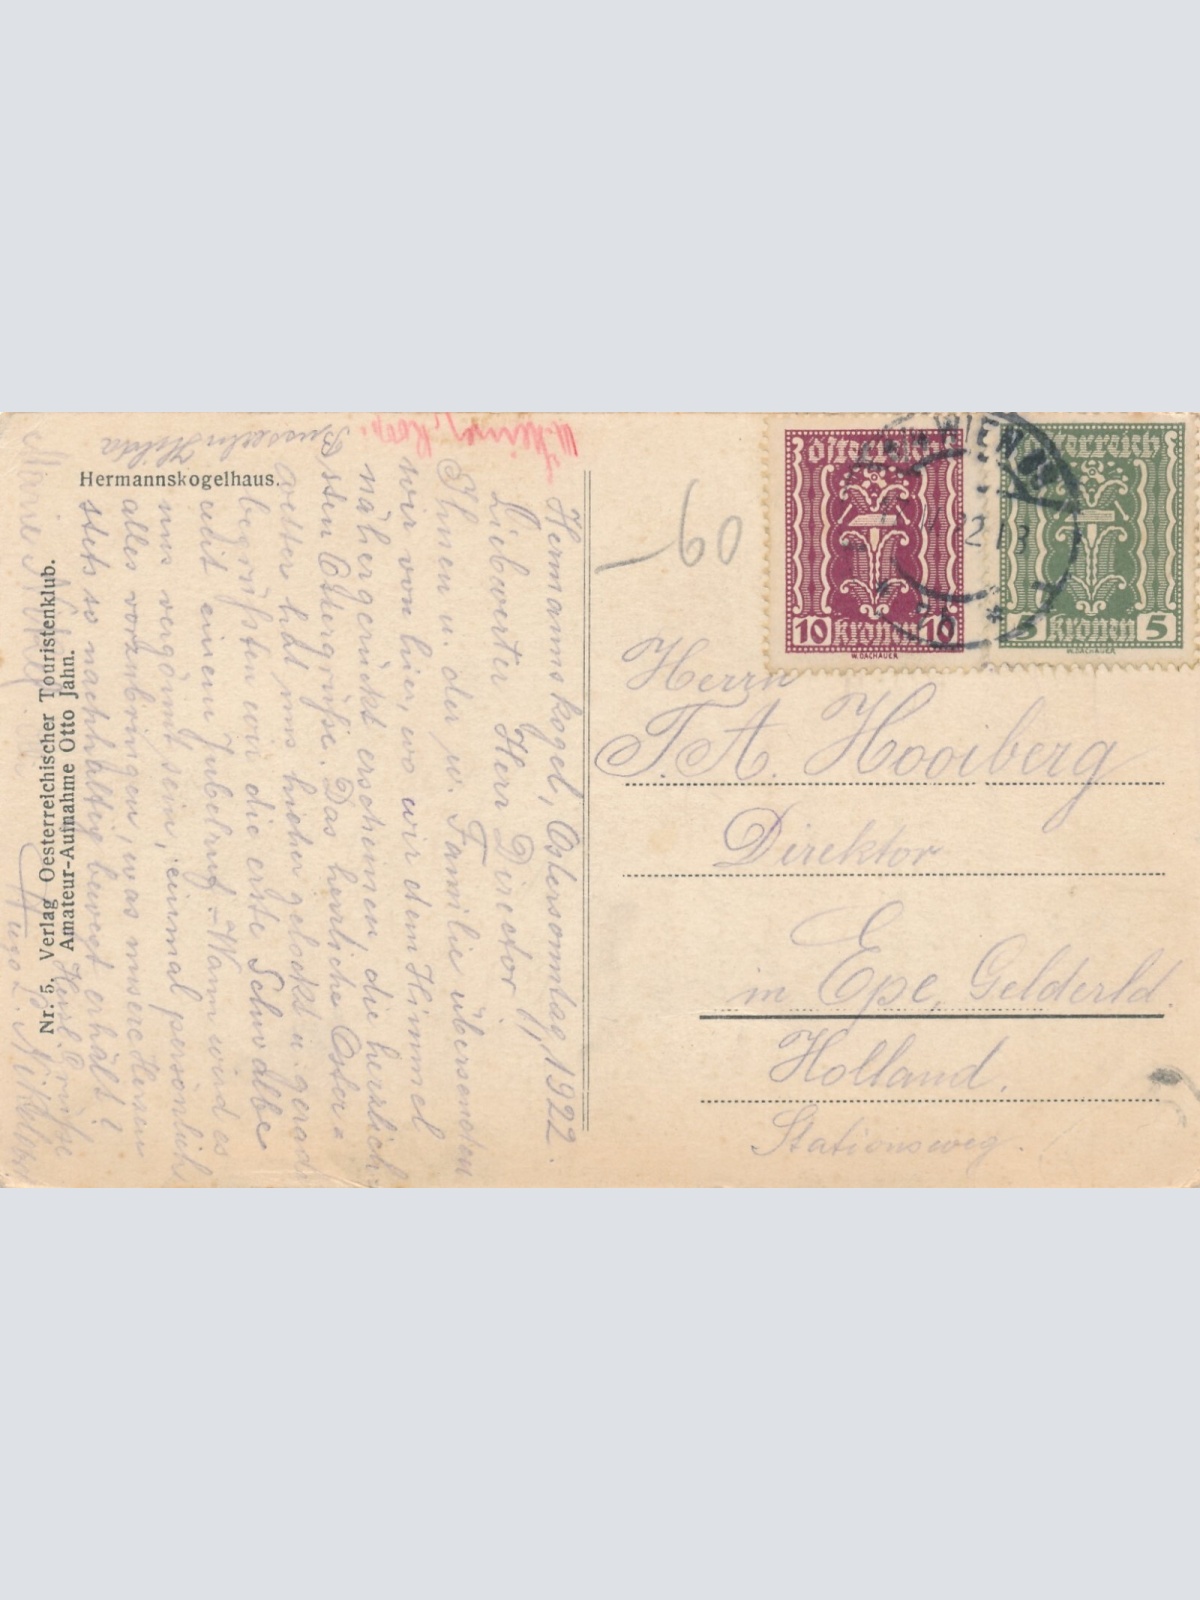 Hermannskogelhaus.
Hermannskogel, Ostersonntag, 1922.
Liebwerter Herr Director!,
Ihnen u. der w. Familie übersenden
wir von hier, wo wir dem Himmel
näher gerückt erscheinen, die herzlich-
sten Ostergrüße. Das herrliche Oster-
wetter hat uns hieher gelockt u. gerade
begrüßten wir die erste Schwalbe
mit einem Jubelruf. Wann wird es
uns vergönnt sein, einmal persönlich
alles vorzubringen, was unsere Herzen
stets so nachhaltig bewegt erhält?
Herzl. Grüße
Hugo
Hilda
Nr. 5. Verlag Oesterreichischer Touristenklub.
Amateur-Aufnahme Otto Jahn.
60
österreich
10 kronen 10
W. DACHAUER
österreich
5 kronen 5
W. DACHAUER
WIEN
Herrn
T. A. Hooiberg
Direktor
in Epe, Gelderld.
Holland.
Stationsweg.